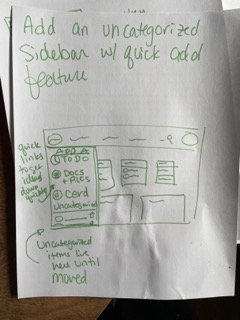 Add an uncategorized
Sidebar w/ quick add
feature
quick
links
to get
ideas
down
quickly
ADD A
TO DO
DOCS
+ PICS
Card
Uncategorized
Uncategorized
items live
here until
moved